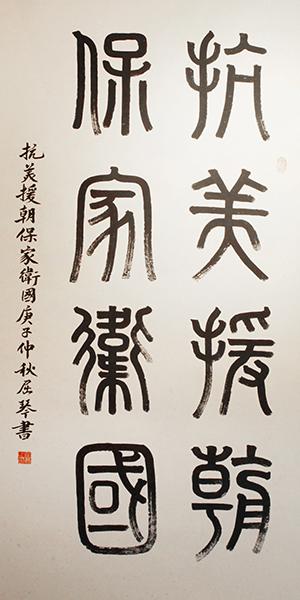 抗美援朝
保家衛國
抗美援朝保家衛國庚子仲秋屈琴書